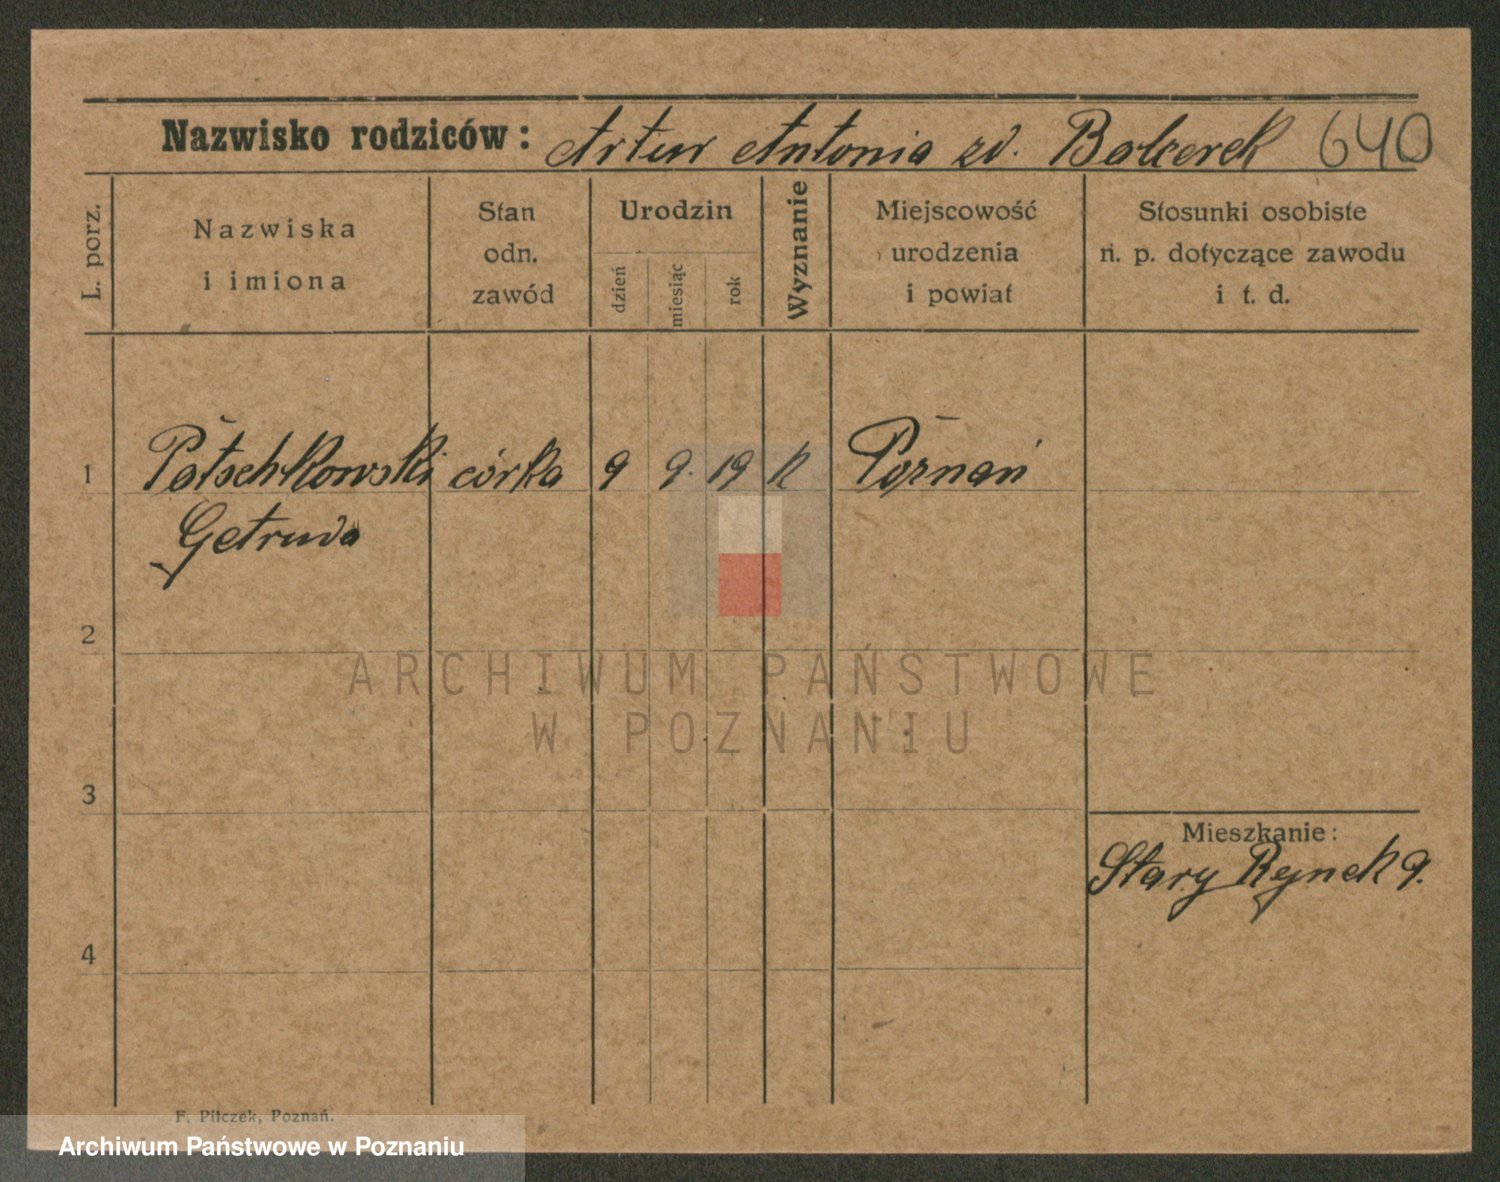 Nazwisko rodziców: Artur Antonia zd. Balcerek 640
L. porz.
Nazwiska
i imiona
Stan
odn.
zawód
Urodzin
dzień
miesiąc
rok
Wyznanie
Miejscowość
urodzenia
i powiat
Stosunki osobiste
n. p. dotyczące zawodu
i t. d.
1 Patschkowski córka 9 9. 19 k Poznań
Getruda
2
ARCHIWUM PAŃSTWOWE
W POZNANIU
3
Mieszkanie:
Stary Rynek 9.
4
F. Pilczek, Poznań.
Archiwum Państwowe w Poznaniu